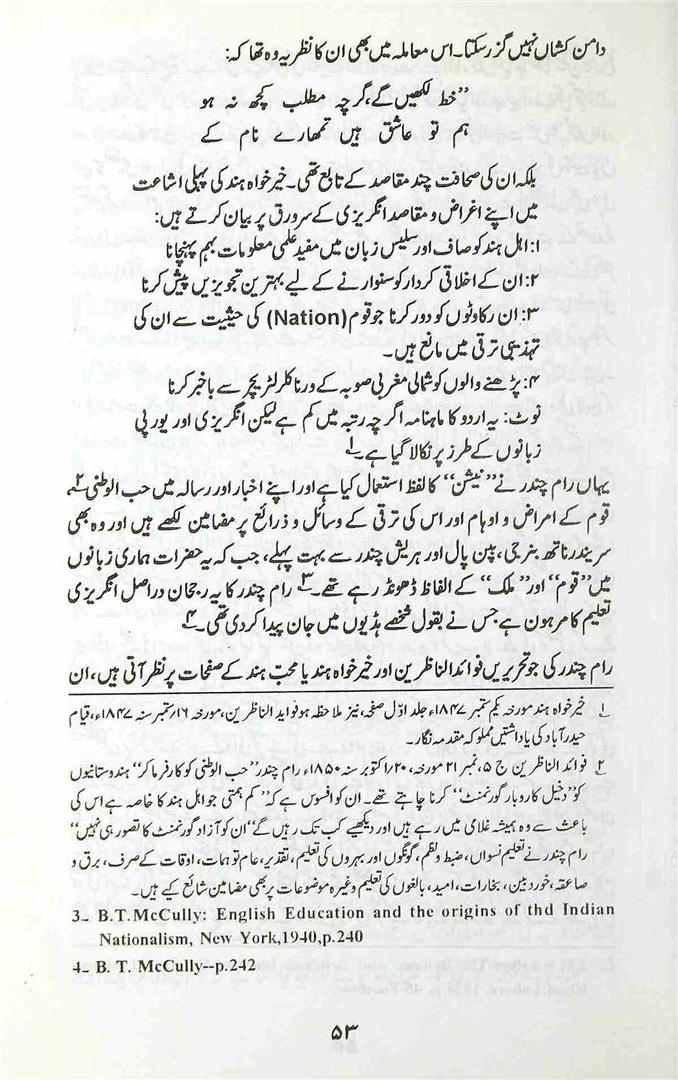 دامن کشاں نہیں گزر سکتا۔ اس معاملہ میں بھی ان کا نظریہ وہ تھا کہ:
”خط لکھیں گے، گرچہ مطلب کچھ نہ ہو
ہم تو عاشق ہیں تمھارے نام کے
بلکہ ان کی صحافت چند مقاصد کے تابع تھی۔ خیر خواہ ہند کی پہلی اشاعت
میں اپنے اغراض و مقاصد انگریزی کے سرورق پر بیان کرتے ہیں:
۱: اہل ہند کو صاف اور سلیس زبان میں مفید علمی معلومات بہم پہنچانا
۲: ان کے اخلاقی کردار کو سنوارنے کے لیے بہترین تجویزیں پیش کرنا
۳: ان رکاوٹوں کو دور کرنا جو قوم (Nation) کی حیثیت سے ان کی
تہذیبی ترقی میں مانع ہیں۔
۴: پڑھنے والوں کو شمالی مغربی صوبہ کے ورناکلر لٹریچر سے باخبر کرنا
نوٹ: یہ اردو کا ماہنامہ اگرچہ رتبہ میں کم ہے لیکن انگریزی اور یورپی
زبانوں کے طرز پر نکالا گیا ہے۔۱
یہاں رام چندر نے ”نیشن“ کا لفظ استعمال کیا ہے اور اپنے اخبار اور رسالہ میں حب الوطنی۲،
قوم کے امراض و اوہام اور اس کی ترقی کے وسائل و ذرائع پر مضامین لکھے ہیں اور وہ بھی
سریندر ناتھ بنرجی، پبن پال اور ہریش چندر سے بہت پہلے، جب کہ یہ حضرات ہماری زبانوں
میں ”قوم“ اور ”ملک“ کے الفاظ ڈھونڈ رہے تھے۔۳ رام چندر کا یہ رجحان دراصل انگریزی
تعلیم کا مرہون ہے جس نے بقول شخصے ہڈیوں میں جان پیدا کر دی تھی۔۴
رام چندر کی جو تحریریں فوائد الناظرین اور خیر خواہ ہند یا محبّ ہند کے صفحات پر نظر آتی ہیں، ان
۱ خیر خواہ ہند مورخہ یکم ستمبر ۱۸۴۷ء جلد اوّل صفحہ، نیز ملاحظہ ہو فواید الناظرین، مورخہ ۱۶/ستمبر سنہ ۱۸۴۷ء، قیام
حیدرآباد کی یاداشتیں مملوکہ مقدمہ نگار۔
۲ فوائد الناظرین ج ۵، نمبر ۲۱ مورخہ، ۲۰/اکتوبر سنہ ۱۸۵۰ء رام چندر ”حب الوطنی کو کارفرما کر“ ہندوستانیوں
کو ”دخیل کاروبار گورنمنٹ“ کرنا چاہتے تھے۔ ان کو افسوس ہے کہ ”کم ہمتی جو اہل ہند کا خاصہ ہے اس کی
باعث سے وہ ہمیشہ غلامی میں رہے ہیں اور دیکھیے کب تک رہیں گے“ ان کو آزاد گورنمنٹ کا تصور ہی نہیں“
رام چندر نے تعلیم نسواں، ضبط و نظم، گونگوں اور بہروں کی تعلیم، تقدیر، عام توہمات، اوقات کے صرف، برق و
صاعقہ، خوردبین، بخارات، امید، بالغوں کی تعلیم وغیرہ موضوعات پر بھی مضامین شائع کیے ہیں۔
3_ B.T.McCully: English Education and the origins of thd Indian
Nationalism, New York,1940,p.240
4_ B. T. McCully--p.242
۵۳